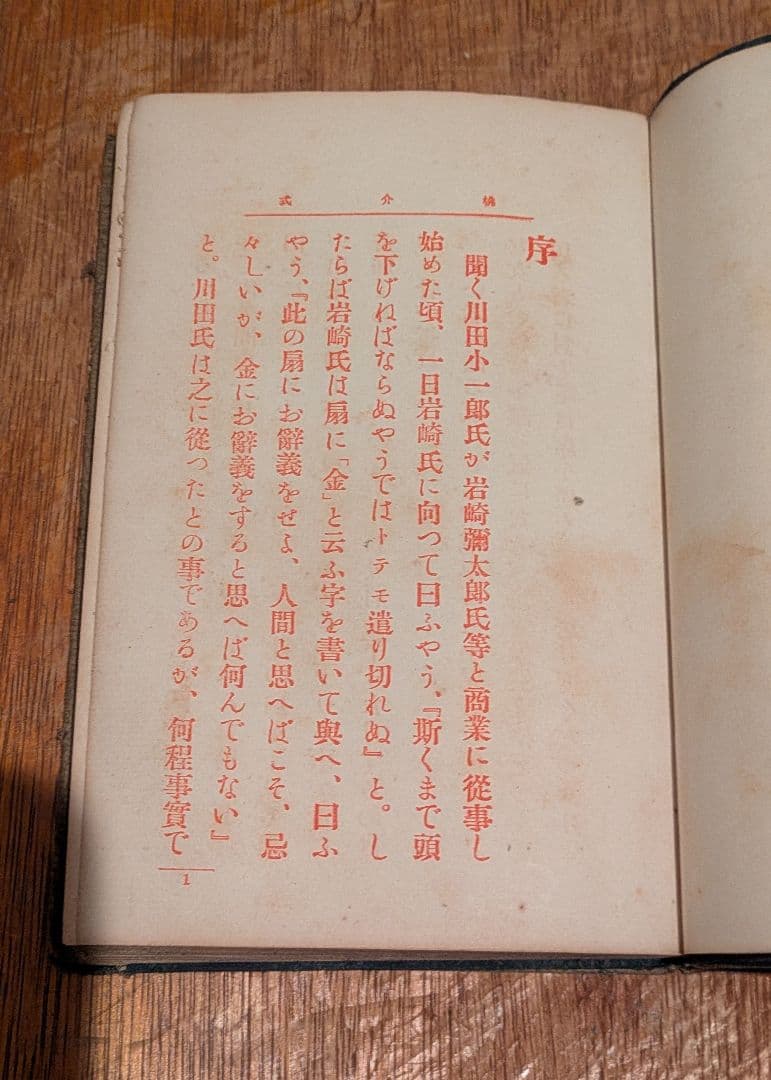 桃介式
序
聞く川田小一郞氏が岩崎彌太郞氏等と商業に從事し
始めた頃、一日岩崎氏に向つて曰ふやう、『斯くまで頭
を下げねばならぬやうではトテモ遣り切れぬ』と。し
たらば岩崎氏は扇に「金」と云ふ字を書いて與へ、曰ふ
やう、『此の扇にお辭義をせよ、人間と思へばこそ、忌
々しいが、金にお辭義をすると思へば何んでもない』
と。川田氏は之に從つたとの事であるが、何程事實で
1